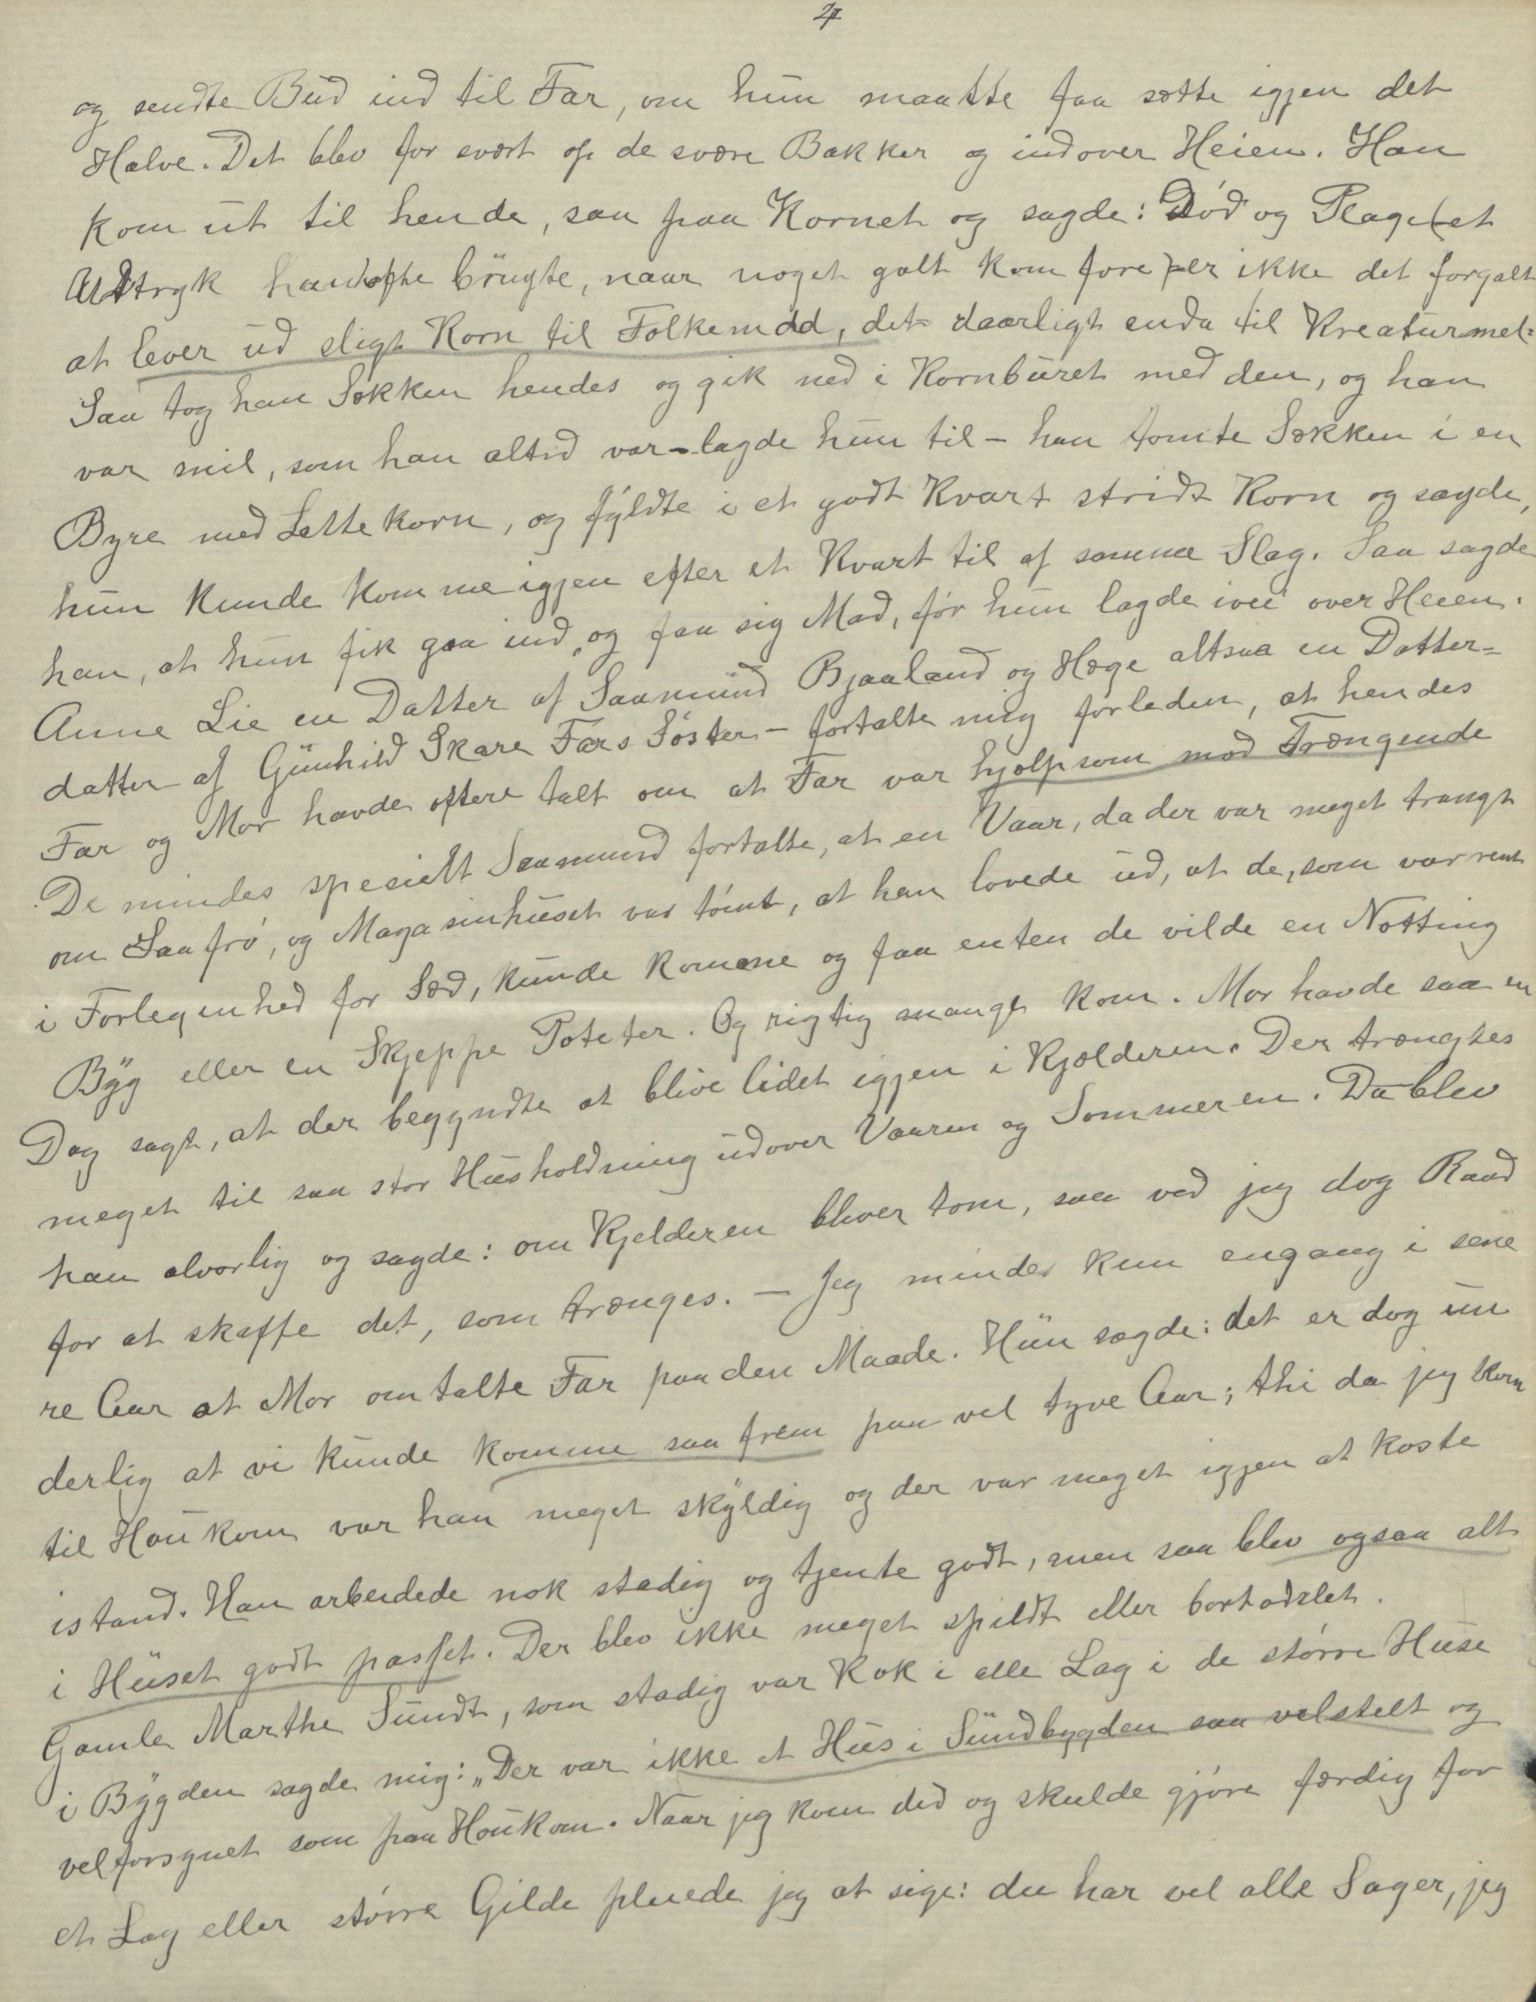 4
og sendte Bud ind til Far, om hun maatte faa sætte igjen det
Halve. Det blev for svært op de svære Bakker og indover Heien. Han
kom ut til hende, saa paa Kornet og sagde: Død og Plage (et
Udtryk han ofte brugte, naar noget galt kom fore) er ikke det forgalt
at lever ud sligt Korn til Folkemad, det daarligt enda til Kreaturmel:
Saa tog han Sækken hendes og gik ned i Kornburet med den, og han
var snil, som han altid var – lagde hun til – han tømte Sækken i en
Byre med Lettekorn, og fyldte i et godt Kvart stridt Korn og sagde,
hun kunde komme igjen efter et Kvart til af samme Slag. Saa sagde
han, at hun fik gaa ind, og faa sig Mad, før hun lagde ivei over Heien.
Anne Lie en Datter af Saamund Bjaaland og Hæge altsaa en Datter=
datter af Gunhild Skare Fars Søster – fortalte mig forleden, at hendes
Far og Mor havde oftere talt om at Far var hjælpsom mod Trængende
De mindes spesielt Saamund fortalte, at en Vaar, da der var meget trangt
om Saafrø, og Magasinhuset var tømt, at han lovede ud, at de, som var rent
i Forlegenhed for Sæd, kunde komme og faa enten de vilde en Notting
Byg eller en Skjeppe Poteter. Og rigtig mange kom. Mor havde saa en
Dag sagt, at der begyndte at blive lidet igjen i Kjælderen. Der trængtes
meget til saa stor Husholdning udover Vaaren og Sommeren. Da blev
han alvorlig og sagde: om Kjelderen bliver tom, saa ved jeg dog Raad
for at skaffe det, som trænges. – Jeg mindes kun engang i sene
re Aar at Mor omtalte Far paa den Maade. Hun sagde: det er dog un
derlig at vi kunde komme saa frem paa vel tyve Aar; thi da jeg kom
til Houkom var han meget skyldig og der var meget igjen at koste
istand. Han arbeidede nok stadig og tjente godt, men saa blev ogsaa alt
i Huset godt passet. Der blev ikke meget spildt eller bortødslet.
Gamle Marthe Sundt, som stadig var Kok i alle Lag i de større Huse
i Bygden sagde mig: „Der var ikke et Hus i Sundbygden saa velstelt og
velforsynet som paa Houkom. Naar jeg kom did og skulde gjøre færdig for
et Lag eller større Gilde pleiede jeg at sige: du har vel alle Sager, jeg